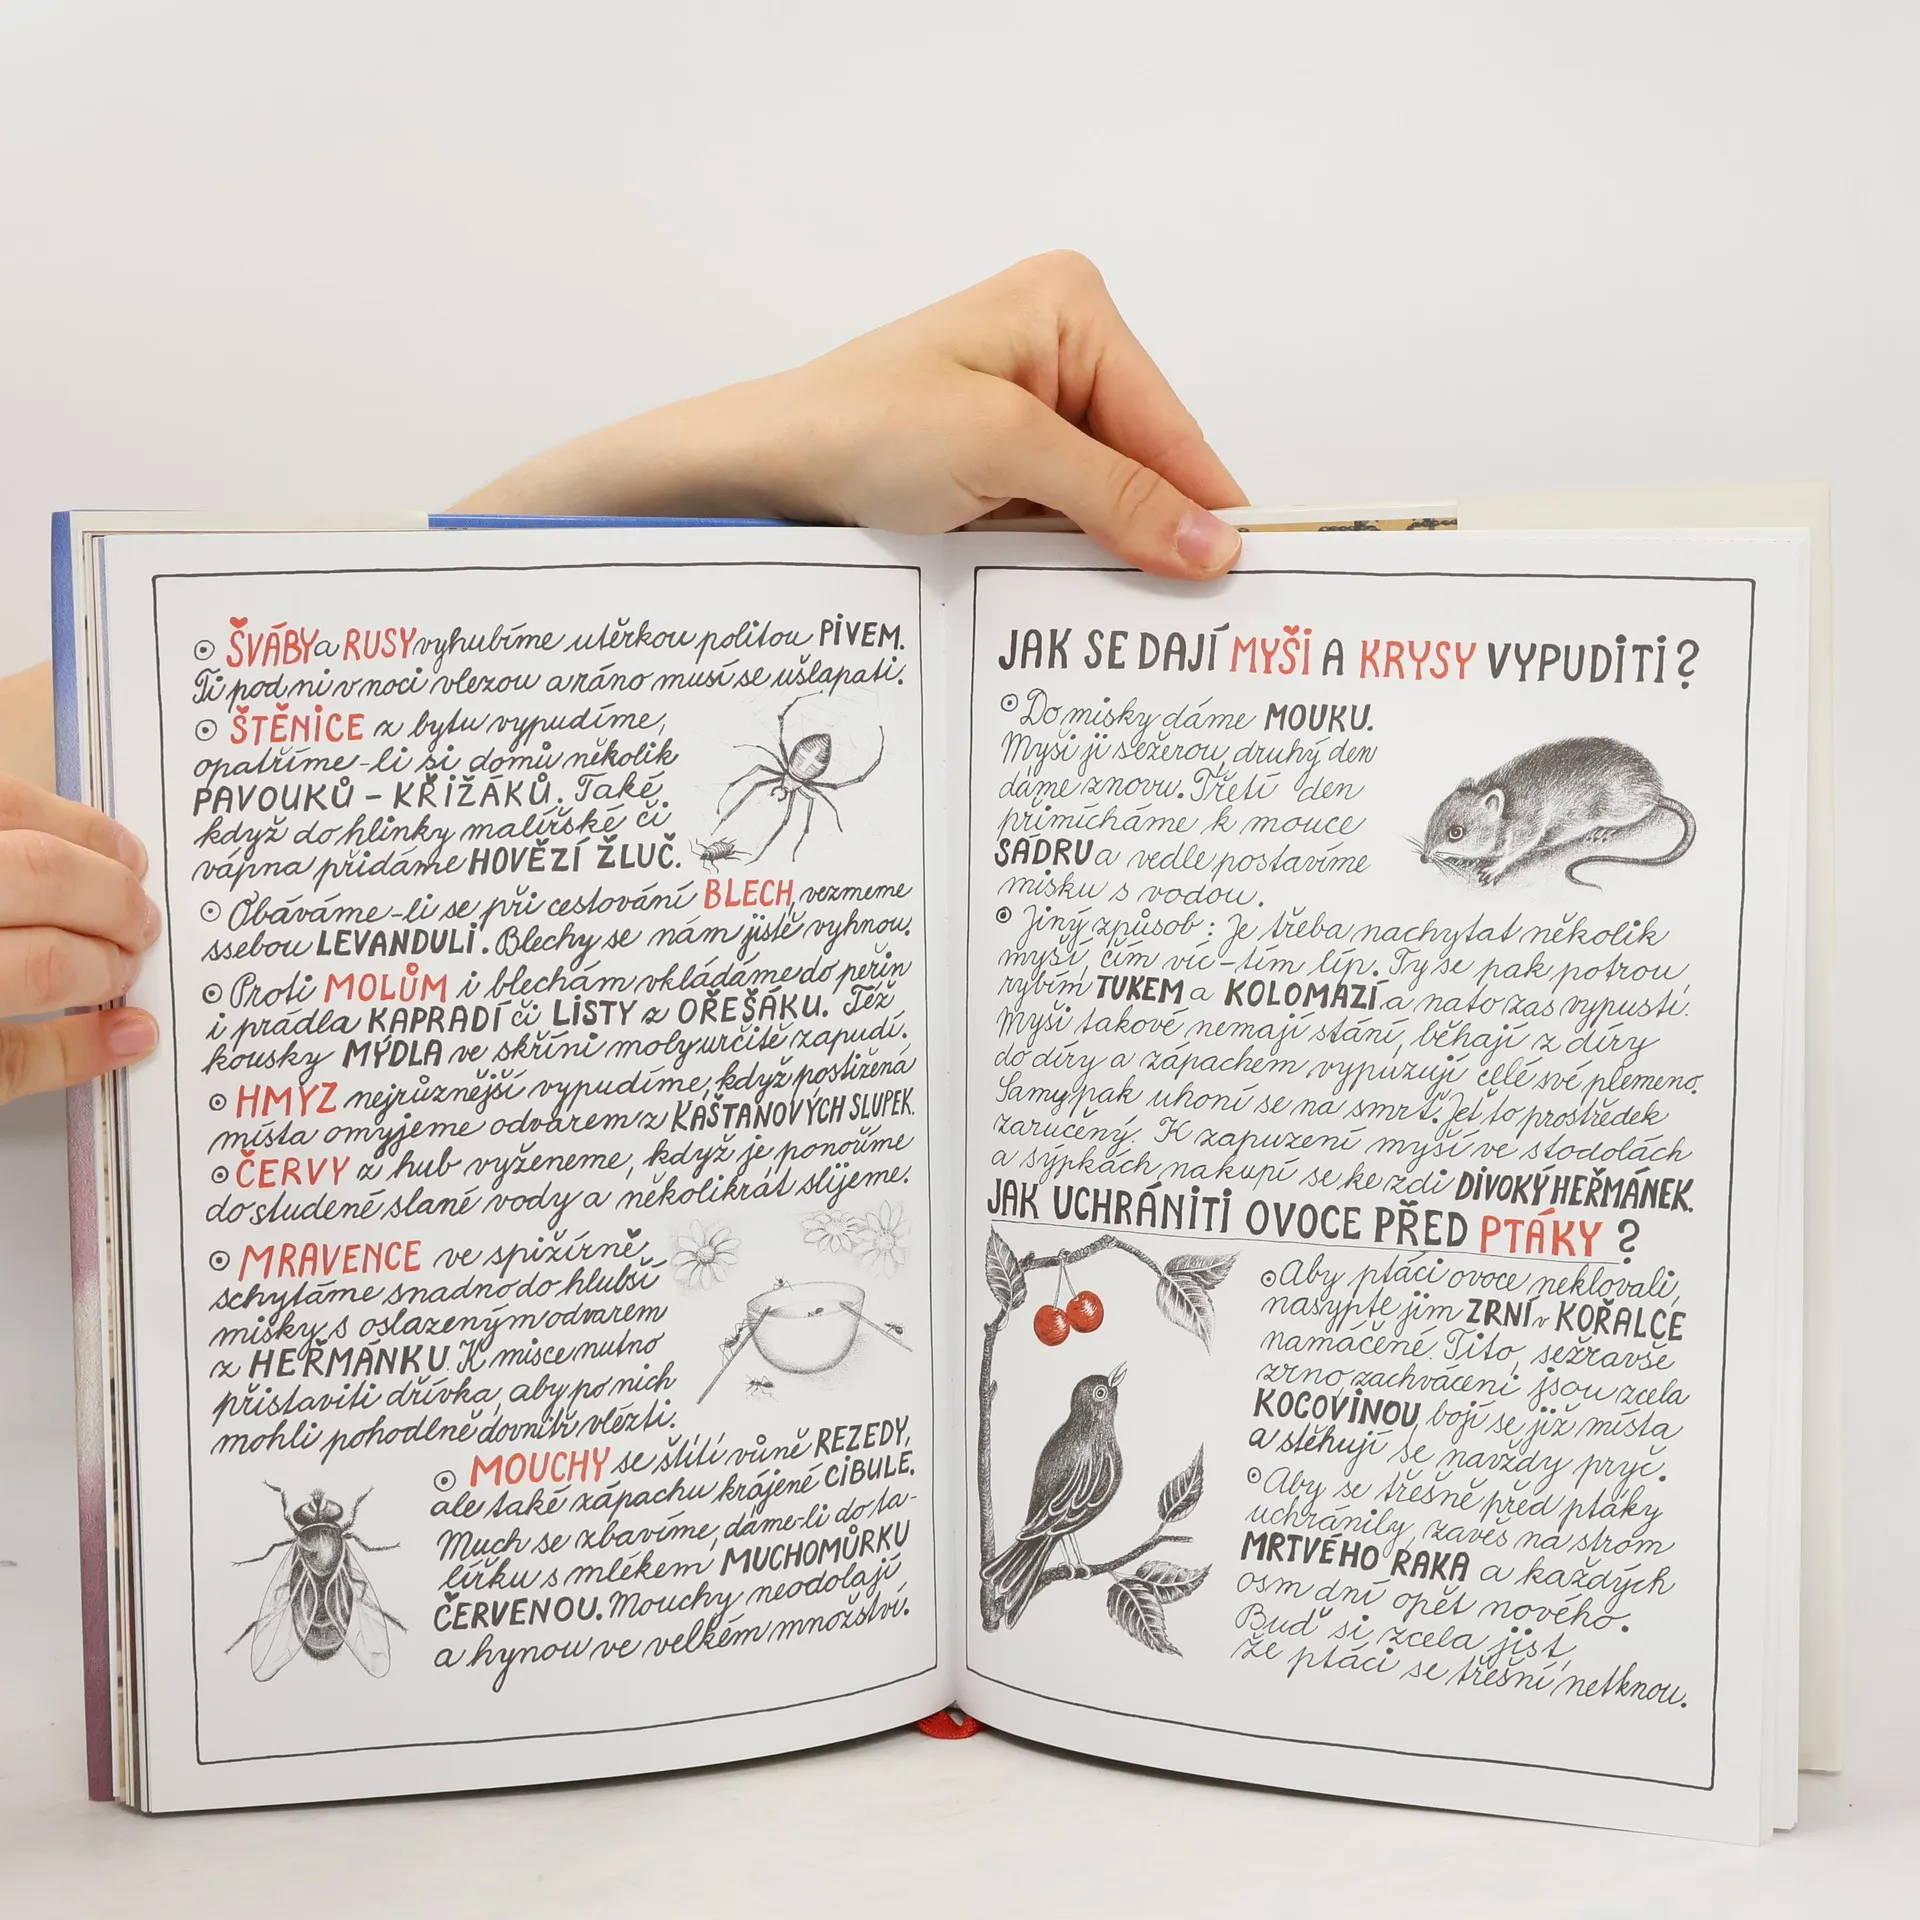 ⊙ ŠVÁBY a RUSY vyhubíme utěrkou politou PIVEM.
Ti pod ni v noci vlezou a ráno musí se ušlapati.
⊙ ŠTĚNICE z bytu vypudíme,
opatříme-li si domů několik
PAVOUKŮ - KŘIŽÁKŮ. Také
když do hlinky malířské či
vápna přidáme HOVĚZÍ ŽLUČ.
⊙ Obáváme-li se při cestování BLECH, vezmeme
ssebou LEVANDULI. Blechy se nám jistě vyhnou.
⊙ Proti MOLŮM i blechám vkládáme do peřin
i prádla KAPRADÍ či LISTY z OŘEŠÁKU. Též
kousky MÝDLA ve skříni moly určitě zapudí.
⊙ HMYZ nejrůznější vypudíme, když postižená
místa omyjeme odvarem z KAŠTANOVÝCH SLUPEK.
⊙ ČERVY z hub vyženeme, když je ponoříme
do studené slané vody a několikrát slijeme.
⊙ MRAVENCE ve spižírně,
schytáme snadno do hlubší
misky s oslazeným odvarem
z HEŘMÁNKU. K misce nutno
přistaviti dřívka, aby po nich
mohli pohodlně dovnitř vlézti.
⊙ MOUCHY se štítí vůně REZEDY,
ale také zápachu krájené CIBULE.
Much se zbavíme, dáme-li do ta-
lířku s mlékem MUCHOMŮRKU
ČERVENOU. Mouchy neodolají
a hynou ve velkém množství.
JAK SE DAJÍ MYŠI A KRYSY VYPUDITI?
⊙ Do misky dáme MOUKU.
Myši ji sežerou, druhý den
dáme znovu. Třetí den
přimícháme k mouce
SÁDRU a vedle postavíme
misku s vodou.
⊙ Jiný způsob: Je třeba nachytat několik
myší, čím víc - tím líp. Ty se pak potrou,
rybím TUKEM a KOLOMAZÍ a nato zas vypustí.
Myši takové nemají stání, běhají z díry
do díry a zápachem vypuzují celé své plemeno.
Samy pak uhoní se na smrt. Jet to prostředek
zaručený. K zapuzení myší ve stodolách
a sýpkách nakupí se ke zdi DIVOKÝ HEŘMÁNEK.
JAK UCHRÁNITI OVOCE PŘED PTÁKY?
⊙ Aby ptáci ovoce neklovali,
nasypte jim ZRNÍ v KOŘALCE
namáčené. Tito, sežravše
zrno, zachváceni jsou zcela
KOCOVINOU, bojí se již místa
a stěhují se navždy pryč.
⊙ Aby se třešně před ptáky
uchránily, zavěs na strom
MRTVÉHO RAKA a každých
osm dní opět nového.
Buď si zcela jist,
že ptáci se třešní netknou.